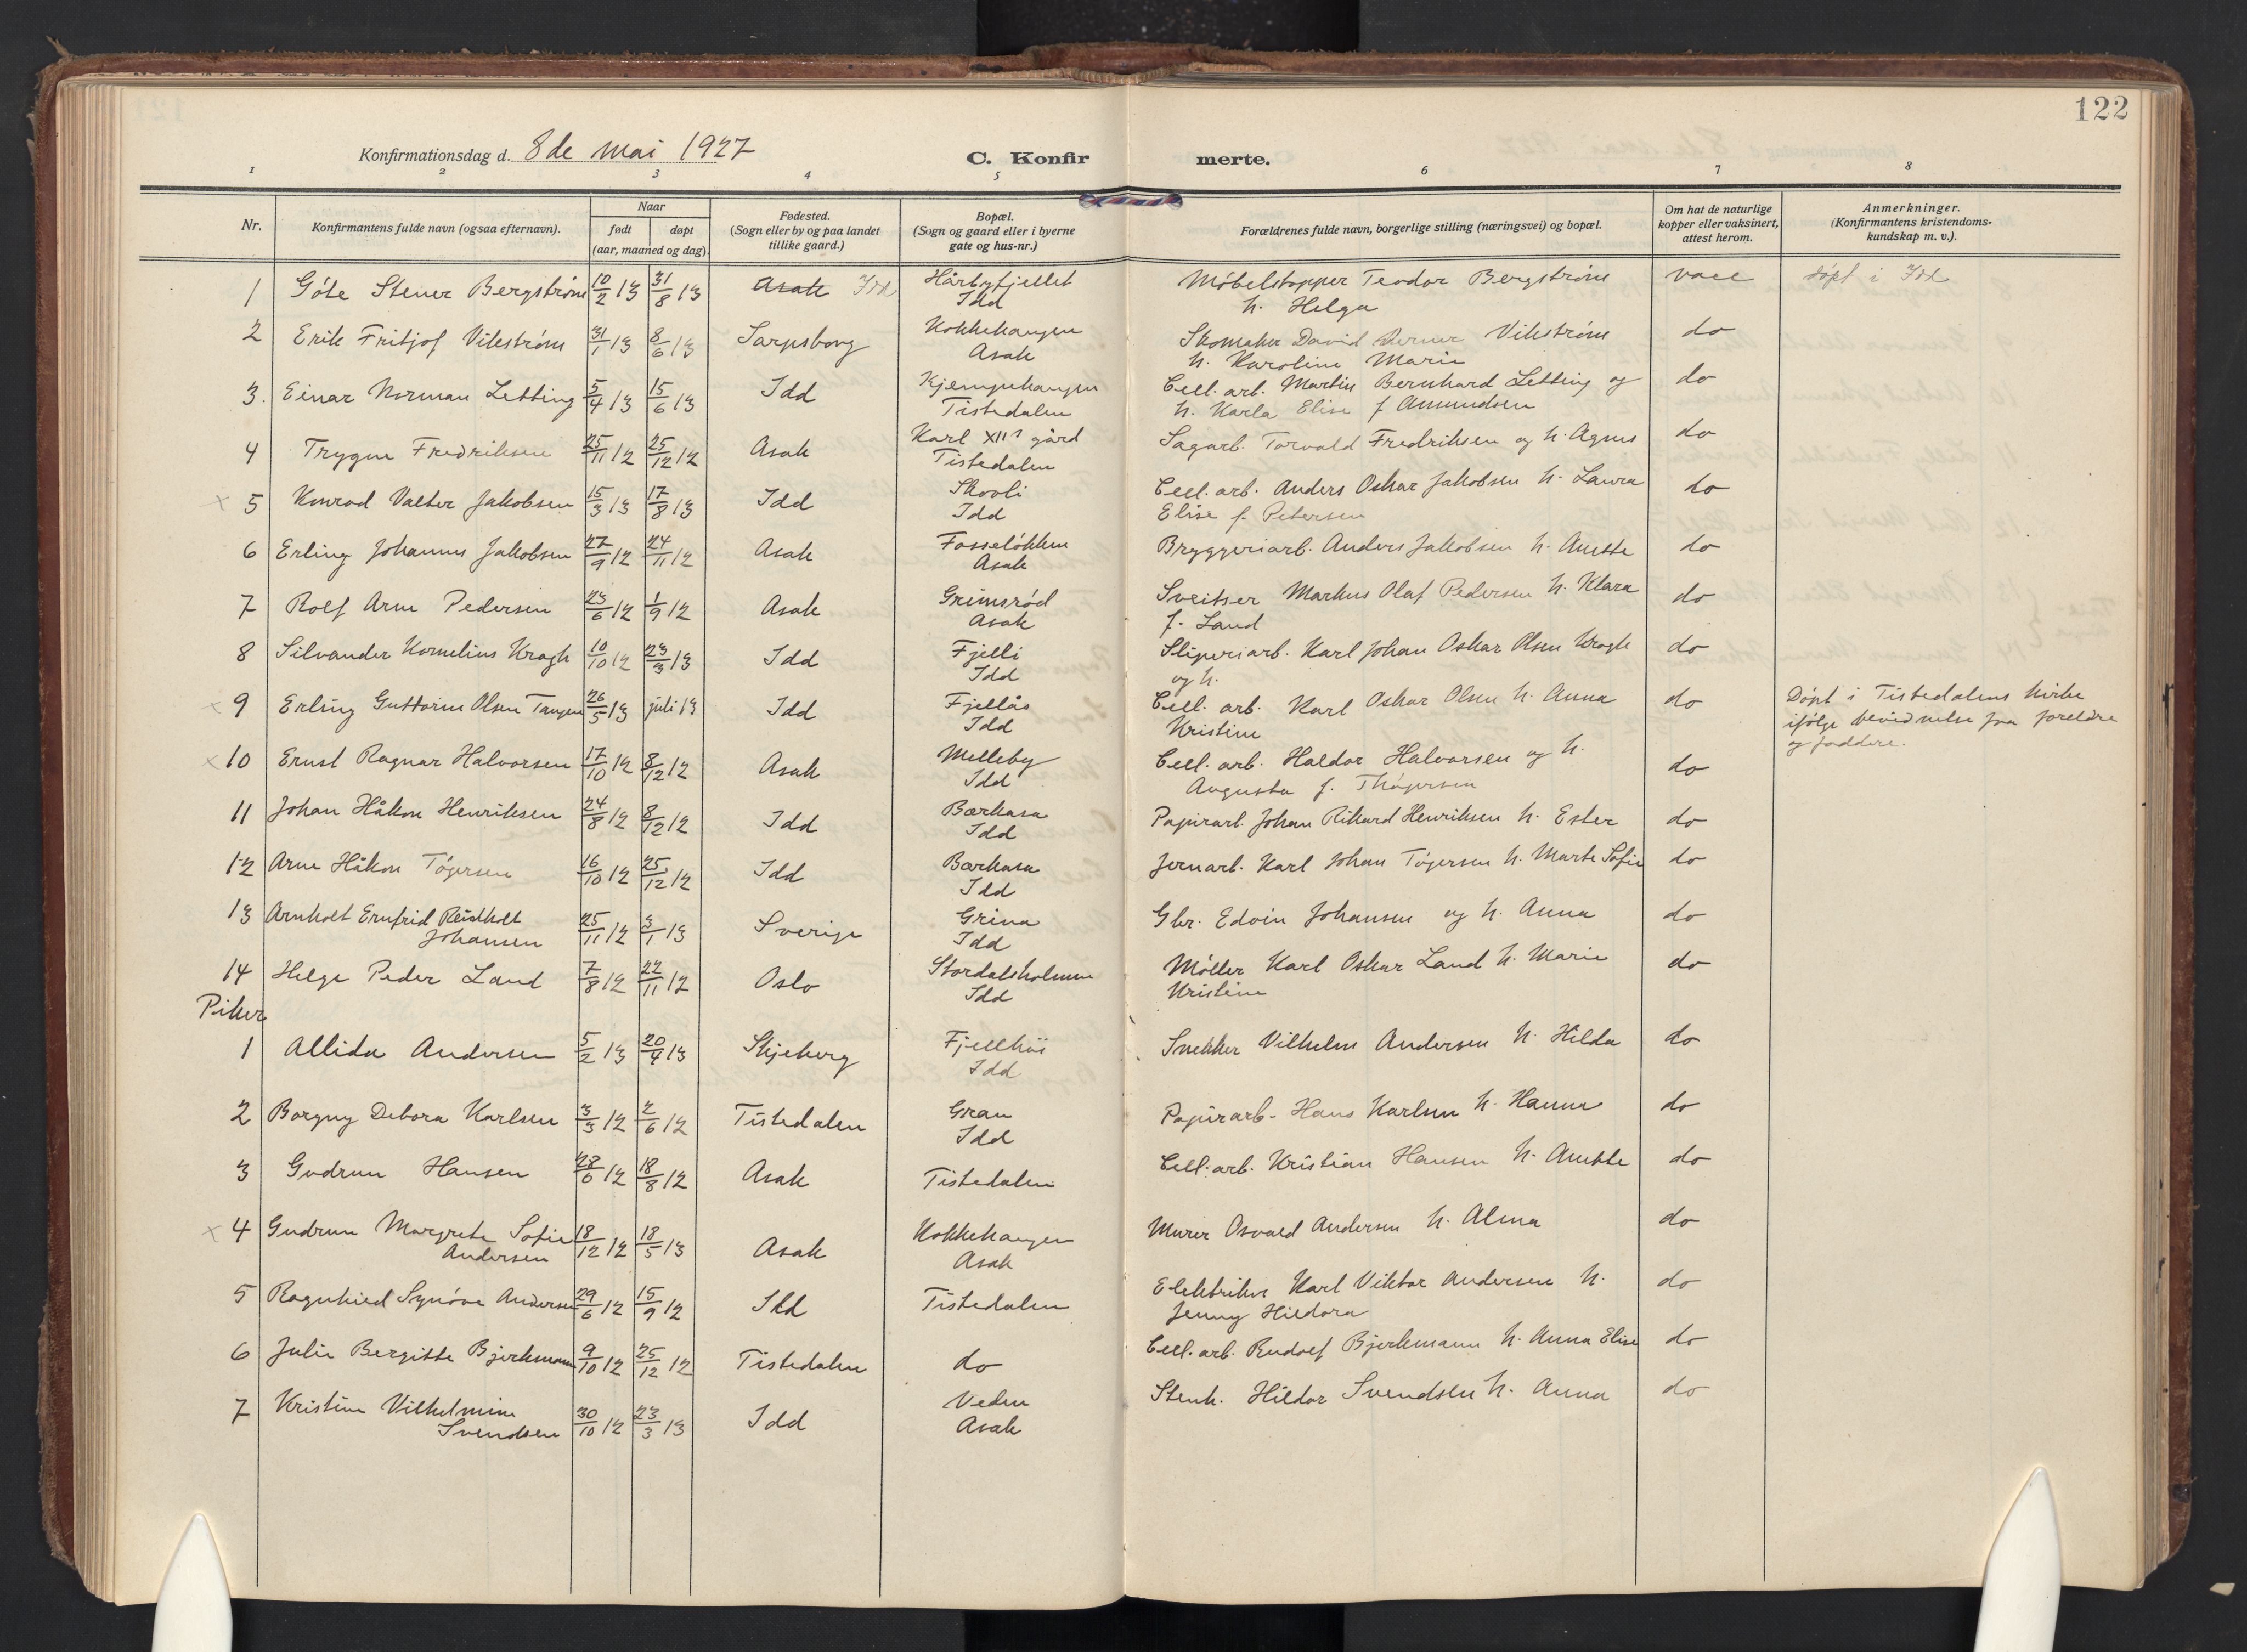 122
Konfirmationsdag d. 8de mai 1927
C. Konfirmerte.
1 2 3 4 5 6 7 8
Nr.
Konfirmantens fulde navn (ogsaa efternavn).
Naar
født døpt
(aar, maaned og dag).
Fødested.
(Sogn eller by og paa landet
tillike gaard.)
Bopæl.
(Sogn og gaard eller i byerne
gate og hus-nr.)
Forældrenes fulde navn, borgerlige stilling (næringsvei) og bopæl.
Om hat de naturlige
kopper eller vaksinert,
attest herom.
Anmerkninger.
(Konfirmantens kristendoms-
kundskap m. v.).
1 Göte Stener Bergström 10/2 13 31/8 13 Asak Idd Hårbyfjellet Møbelstopper Teodor Bergström vacc døpt i Idd
Idd h. Helga
2 Erik Fritjof Vikström 31/1 13 8/6 13 Sarpsborg Kokkehaugen Skomaker David Verner Vikström do
Asak h. Karoline Marie
3. Einar Norman Letting 5/4 13 15/6 13 Idd Kjempehaugen Cell. arb. Martin Bernhard Letting og do
Tistedalen h. Karla Elise f Amundsen
4 Trygve Fredriksen 25/11 12 25/12 12 Asak Karl XIIs gård Sagarb. Torvald Fredriksen og h. Agnes do
Tistedalen
x 5 Konrad Valter Jakobsen 15/3 13 17/8 13 Idd Skovli Cell. arb. Anders Oskar Jakobsen h. Laura do
Idd Elise f. Petersen
6 Erling Johannes Jakobsen 27/9 12 24/11 12 Asak Fosseløkken Bryggeriarb. Anders Jakobsen h. Anette do
Asak
7 Rolf Arne Pedersen 23/6 12 1/9 12 Asak Grimsrød Sveitser Markus Olaf Pedersen h. Klara do
Asak f. Land
8 Silvander Kornelius Kragh 10/10 12 23/3 13 Idd Fjelli Sliperiarb. Karl Johan Oskar Olsen Kragh do
Idd og h.
x 9 Erling Guttorm Olsen Tangen 26/5 13 juli 13 Idd Fjellås Cell. arb. Karl Oskar Olsen h. Anna do Døpt i Tistedalens kirke
Idd Kristine ifølge bevidnelse fra foreldre
og faddere.
x 10 Ernst Ragnar Halvorsen 17/10 12 8/12 12 Asak Melleby Cell. arb. Haldor Halvorsen og h. do
Idd Augusta f. Thøgersen
11 Johan Håkon Henriksen 24/8 12 8/12 12 Idd Bærkasa Papirarb. Johan Rikard Henriksen h. Ester do
Idd
12 Arne Håkon Tøgersen 16/10 12 25/12 12 Idd Bærkasa Jernarb. Karl Johan Tøgersen h. Marte Sofie do
Idd
13 Arnholt Ernfrid Reidholt 25/11 12 3/1 13 Sverige Grina Gbr. Edvin Johansen og h. Anna do
Johansen Idd
14 Helge Peder Land 7/8 12 22/11 12 Oslo Stordalsholmen Møller Karl Oskar Land h. Marie do
Idd Kristine
Piker
1 Allida Andersen 5/2 13 20/4 13 Skjeberg Fjellhøi Snekker Vilhelm Andersen h. Hilda do
Idd
2 Borgny Debora Karlsen 3/3 12 2/6 12 Tistedalen Gran Papirarb. Hans Karlsen h. Hanna do
Idd
3 Gudrun Hansen 28/6 12 18/8 12 Asak Tistedalen Cell. arb. Kristian Hansen h. Anette do
x 4 Gudrun Margrete Sofie 18/12 12 18/5 13 Asak Kokkehaugen Murer Osvald Andersen h. Alma do
Andersen Asak
5 Ragnhild Synøve Andersen 29/6 12 15/9 12 Idd Tistedalen Elektriker Karl Viktor Andersen h. do
Jenny Hildora
6 Julie Bergitte Bjerkemann 9/10 12 25/12 12 Tistedalen do Cell. arb. Rudolf Bjerkemann h. Anna Elise do
7 Kristine Vilhelmine 30/10 12 23/3 13 Idd Veden Stenh. Hildor Svendsen h. Anna do
Svendsen Asak